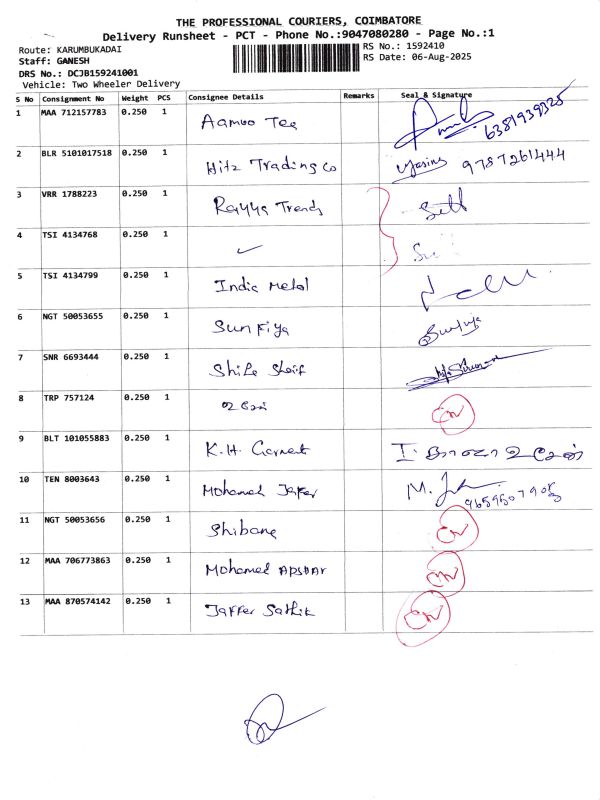 THE PROFESSIONAL COURIERS, COIMBATORE
Delivery Runsheet - PCT - Phone No.:9047080280 - Page No.:1
Route: KARUMBUKADAI
RS No.: 1592410
Staff: GANESH
RS Date: 06-Aug-2025
DRS No.: DCJB159241001
Vehicle: Two Wheeler Delivery
S No Consignment No Weight PCS Consignee Details Remarks Seal & Signature
1 MAA 712157783 0.250 1 Aamoo Tee 6381939325
2 BLR 5101017518 0.250 1 Hitz Trading Co 9787261444
3 VRR 1788223 0.250 1 Rayya Trends Self
4 TSI 4134768 0.250 1 ✓
5 TSI 4134799 0.250 1 India Metal
6 NGT 50053655 0.250 1 Sun Fiya
7 SNR 6693444 0.250 1
8 TRP 757124 0.250 1
9 BLT 101055883 0.250 1 K.H. Garment
10 TEN 8003643 0.250 1 Mohamed Jaffer
11 NGT 50053656 0.250 1 Shibana
12 MAA 706773863 0.250 1 Mohamed
13 MAA 870574142 0.250 1 Jaffer Sathik